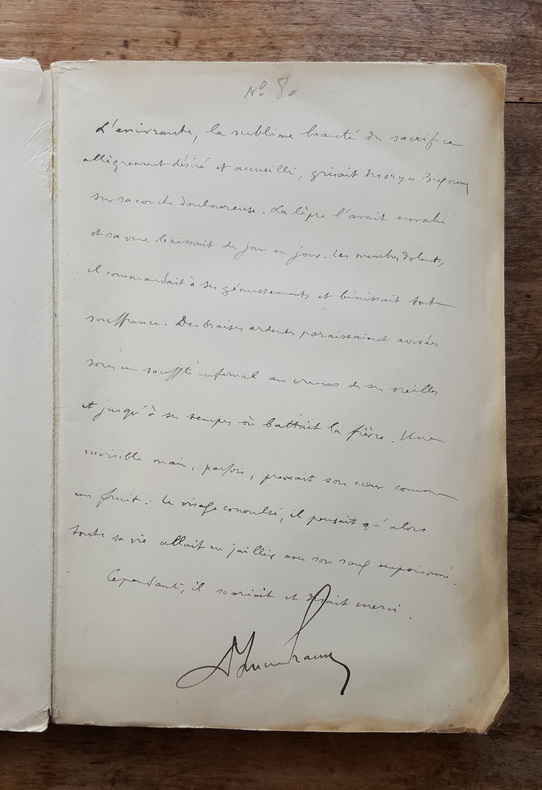 No 8.
L'enivrante, la sublime beauté du sacrifice
allègrement désiré et accueilli, grisait
sur sa couche douloureuse. La lèpre l'avait envahi
et sa vue baissait de jour en jour. Les membres dolents,
il commandait à ses gémissements et bénissait toute
souffrance. Des braises ardentes paraissaient avivées
sous un souffle infernal au creux de ses oreilles
et jusqu'à ses tempes où battait la fièvre. Une
invisible main, parfois, pressait son cœur comme
un fruit. Le visage convulsé, il pensait qu'alors
toute sa vie allait en jaillir avec son sang empoisonné.
Cependant, il souriait et disait merci.